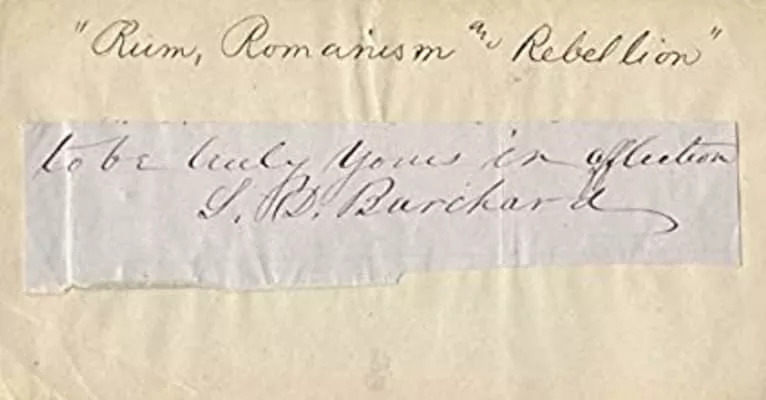 "Rum, Romanism an, Rebellion"
to be truly yours in affliction
S. D. Burchard